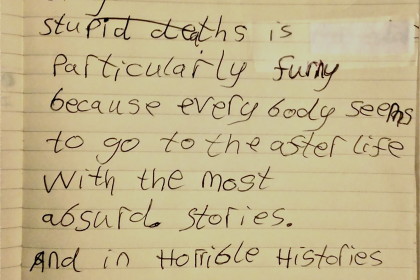 stupid deaths is
particularly funny
because every body seems
to go to the aster life
with the most
absurd. stories.
And in Horrible Histories